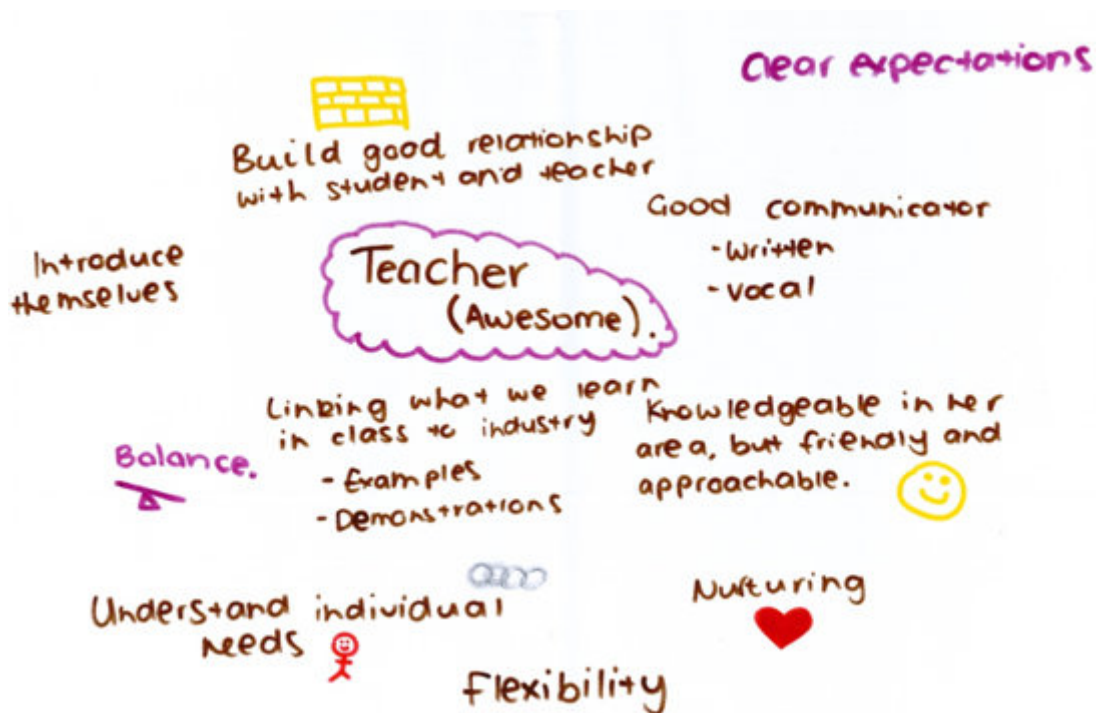 Clear expectations
Build good relationship
with student and teacher
Good communicator
- written
- vocal
Introduce
themselves
Teacher
(Awesome).
Linking what we learn
in class to industry
- Examples
- Demonstrations
Knowledgeable in her
area, but friendly and
approachable.
Balance.
Understand individual
needs
Nurturing
Flexibility